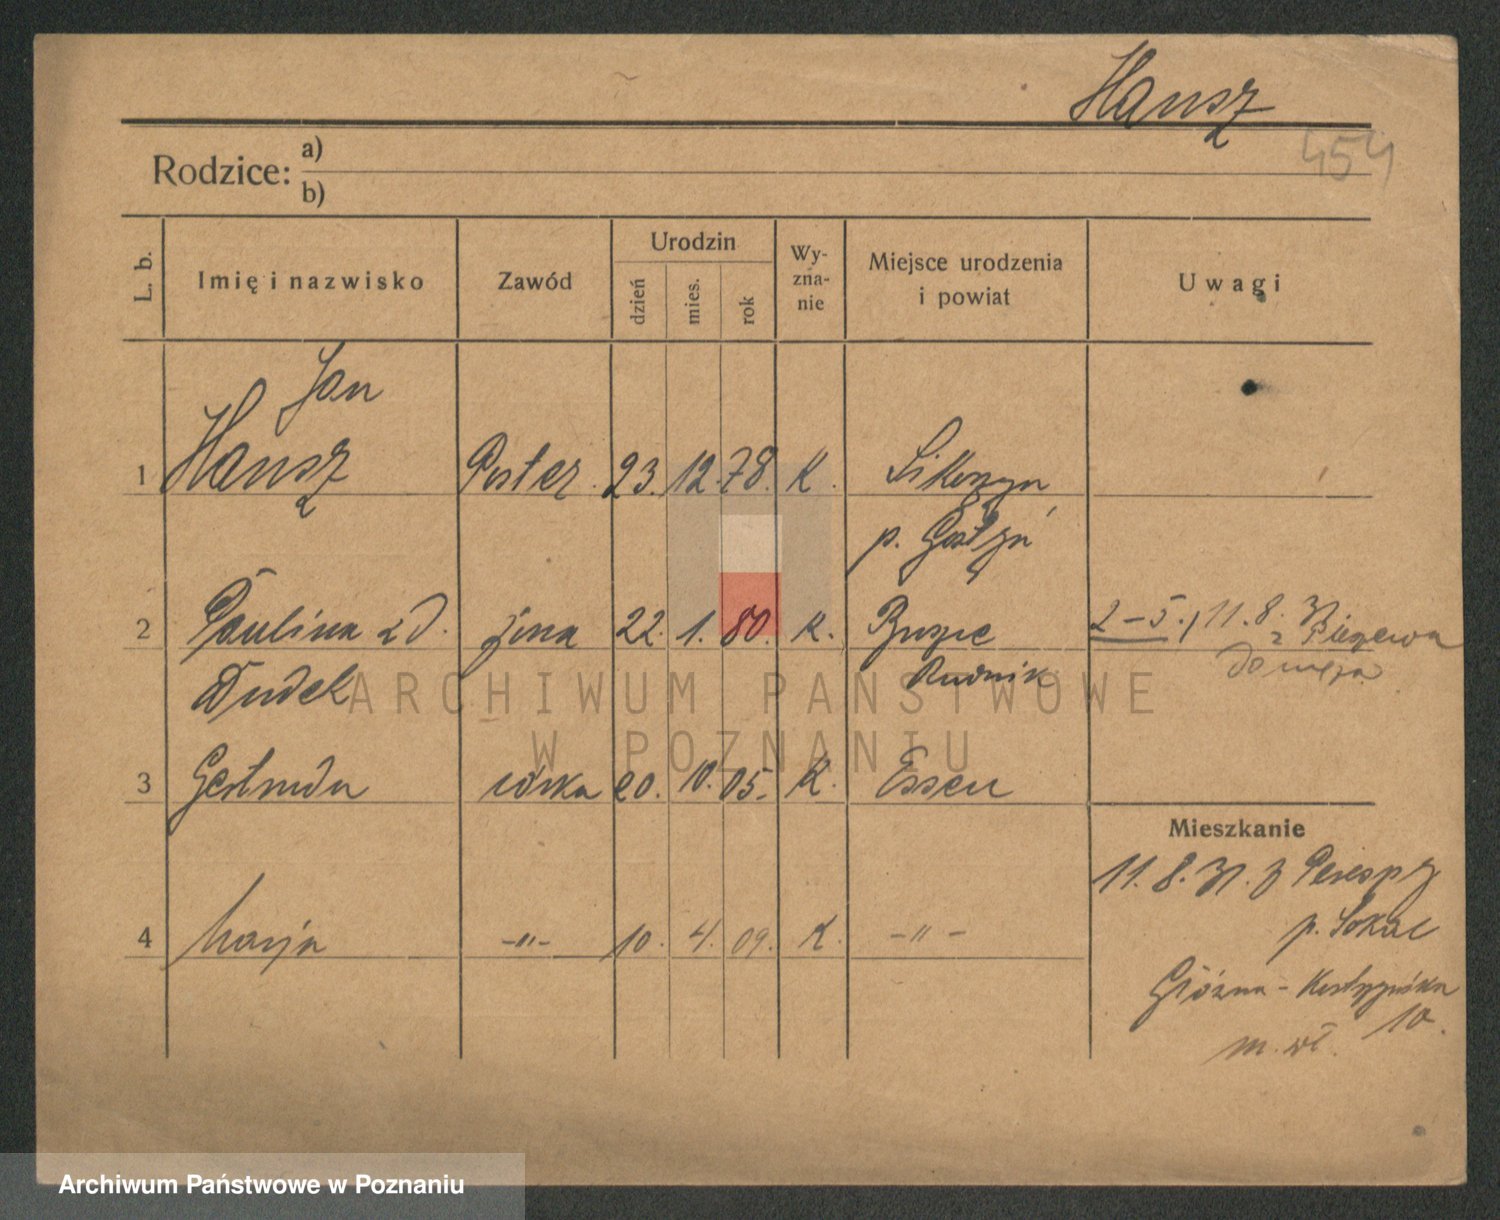 Hansz
454
Rodzice: a)
b)
L. b.
Imię i nazwisko
Zawód
Urodzin
dzień
mies.
rok
Wy-
zna-
nie
Miejsce urodzenia
i powiat
Uwagi
Jan
1 Hansz Poster. 23. 12. 78. K.
p. Gostyń
2 Paulina żona 22. 1. 80. K. 2-5./11.8.31
z
Dudek Rudnik do męża
ARCHIWUM PAŃSTWOWE
W POZNANIU
3 Gertruda córka 20. 10. 05. K. Essen
Mieszkanie
11.8.31. z Perespy
p. Sokal
4 Marja -"- 10. 4. 09. K. -"-
Główna - Kostrzyńska
10.
m. wł.
Archiwum Państwowe w Poznaniu